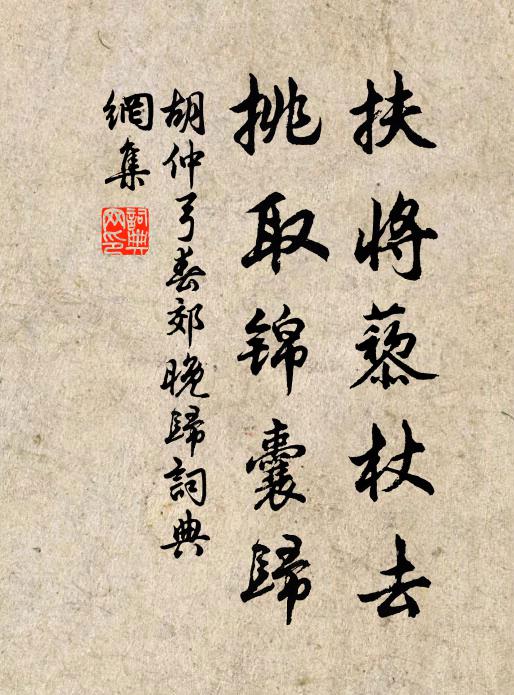 扶將藜杖去
挑取錦囊歸
胡仲弓春郊晚歸詞典
網集
詞典
网印